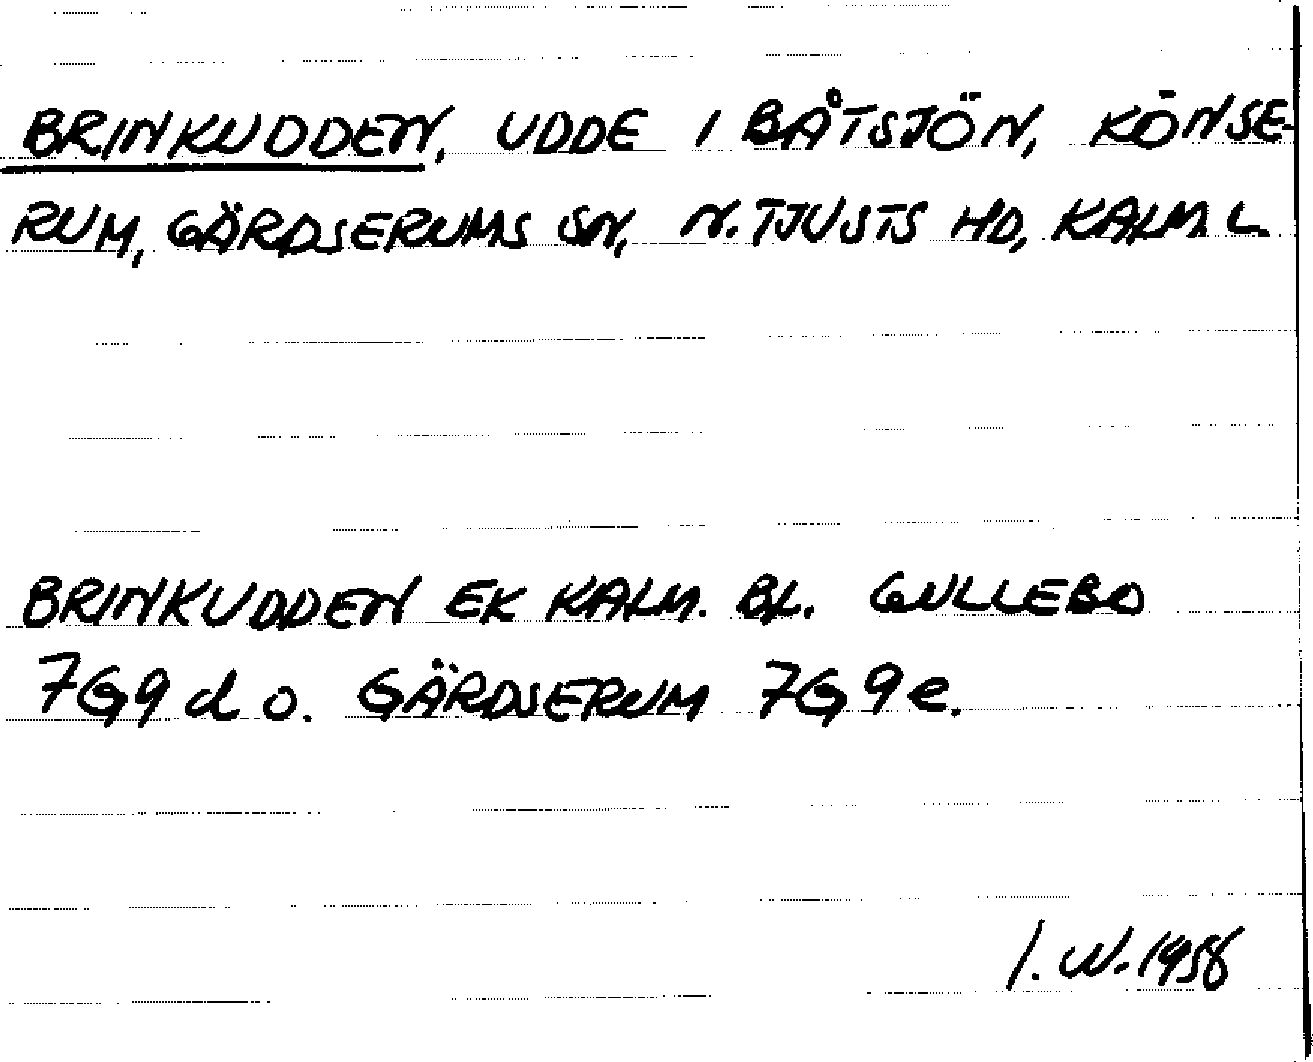 BRINKUDDEN, UDDE I BÅTSJÖN, KÖNSE-
RUM, GÄRDSERUMS SN, N. TJUSTS HD, KALM. L.
BRINKUDDEN EK KALM. BL. GULLEBO
7G9d o. GÄRDSERUM 7G9e.
I. W. 1958